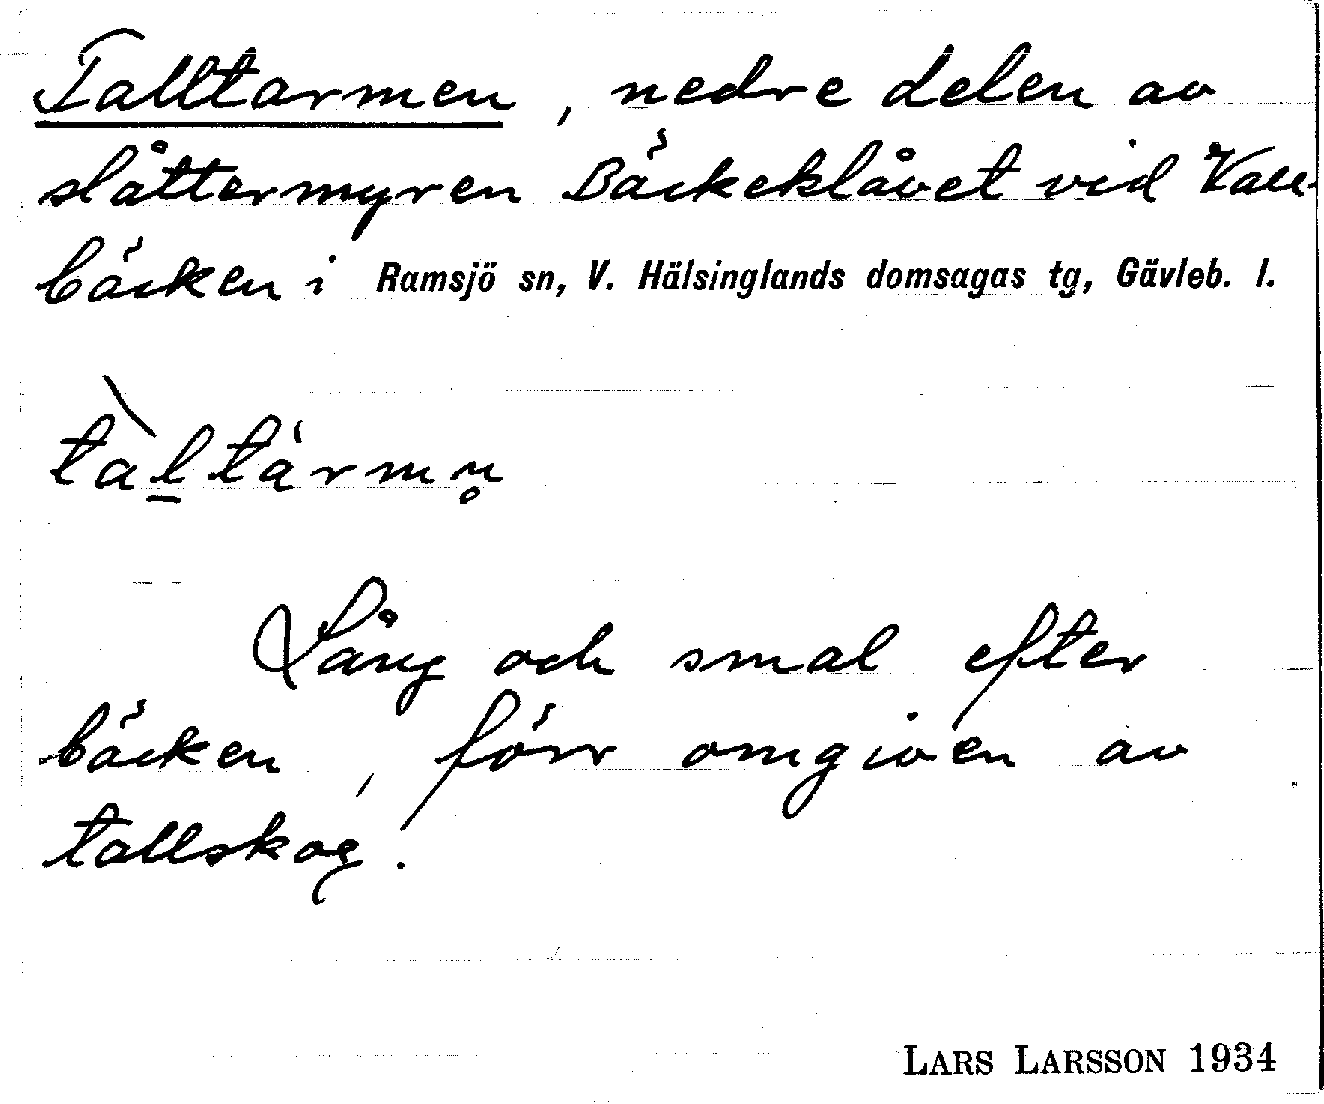 Talltarmen, nedre delen av
slåttermyren Bäckeklåvet vid Vall-
bäcken i Ramsjö sn, V. Hälsinglands domsagas tg, Gävleb. l.
tàl̠tàrmn̥
Lång och smal efter
bäcken, förr omgiven av
tallskog.
LARS LARSSON 1934